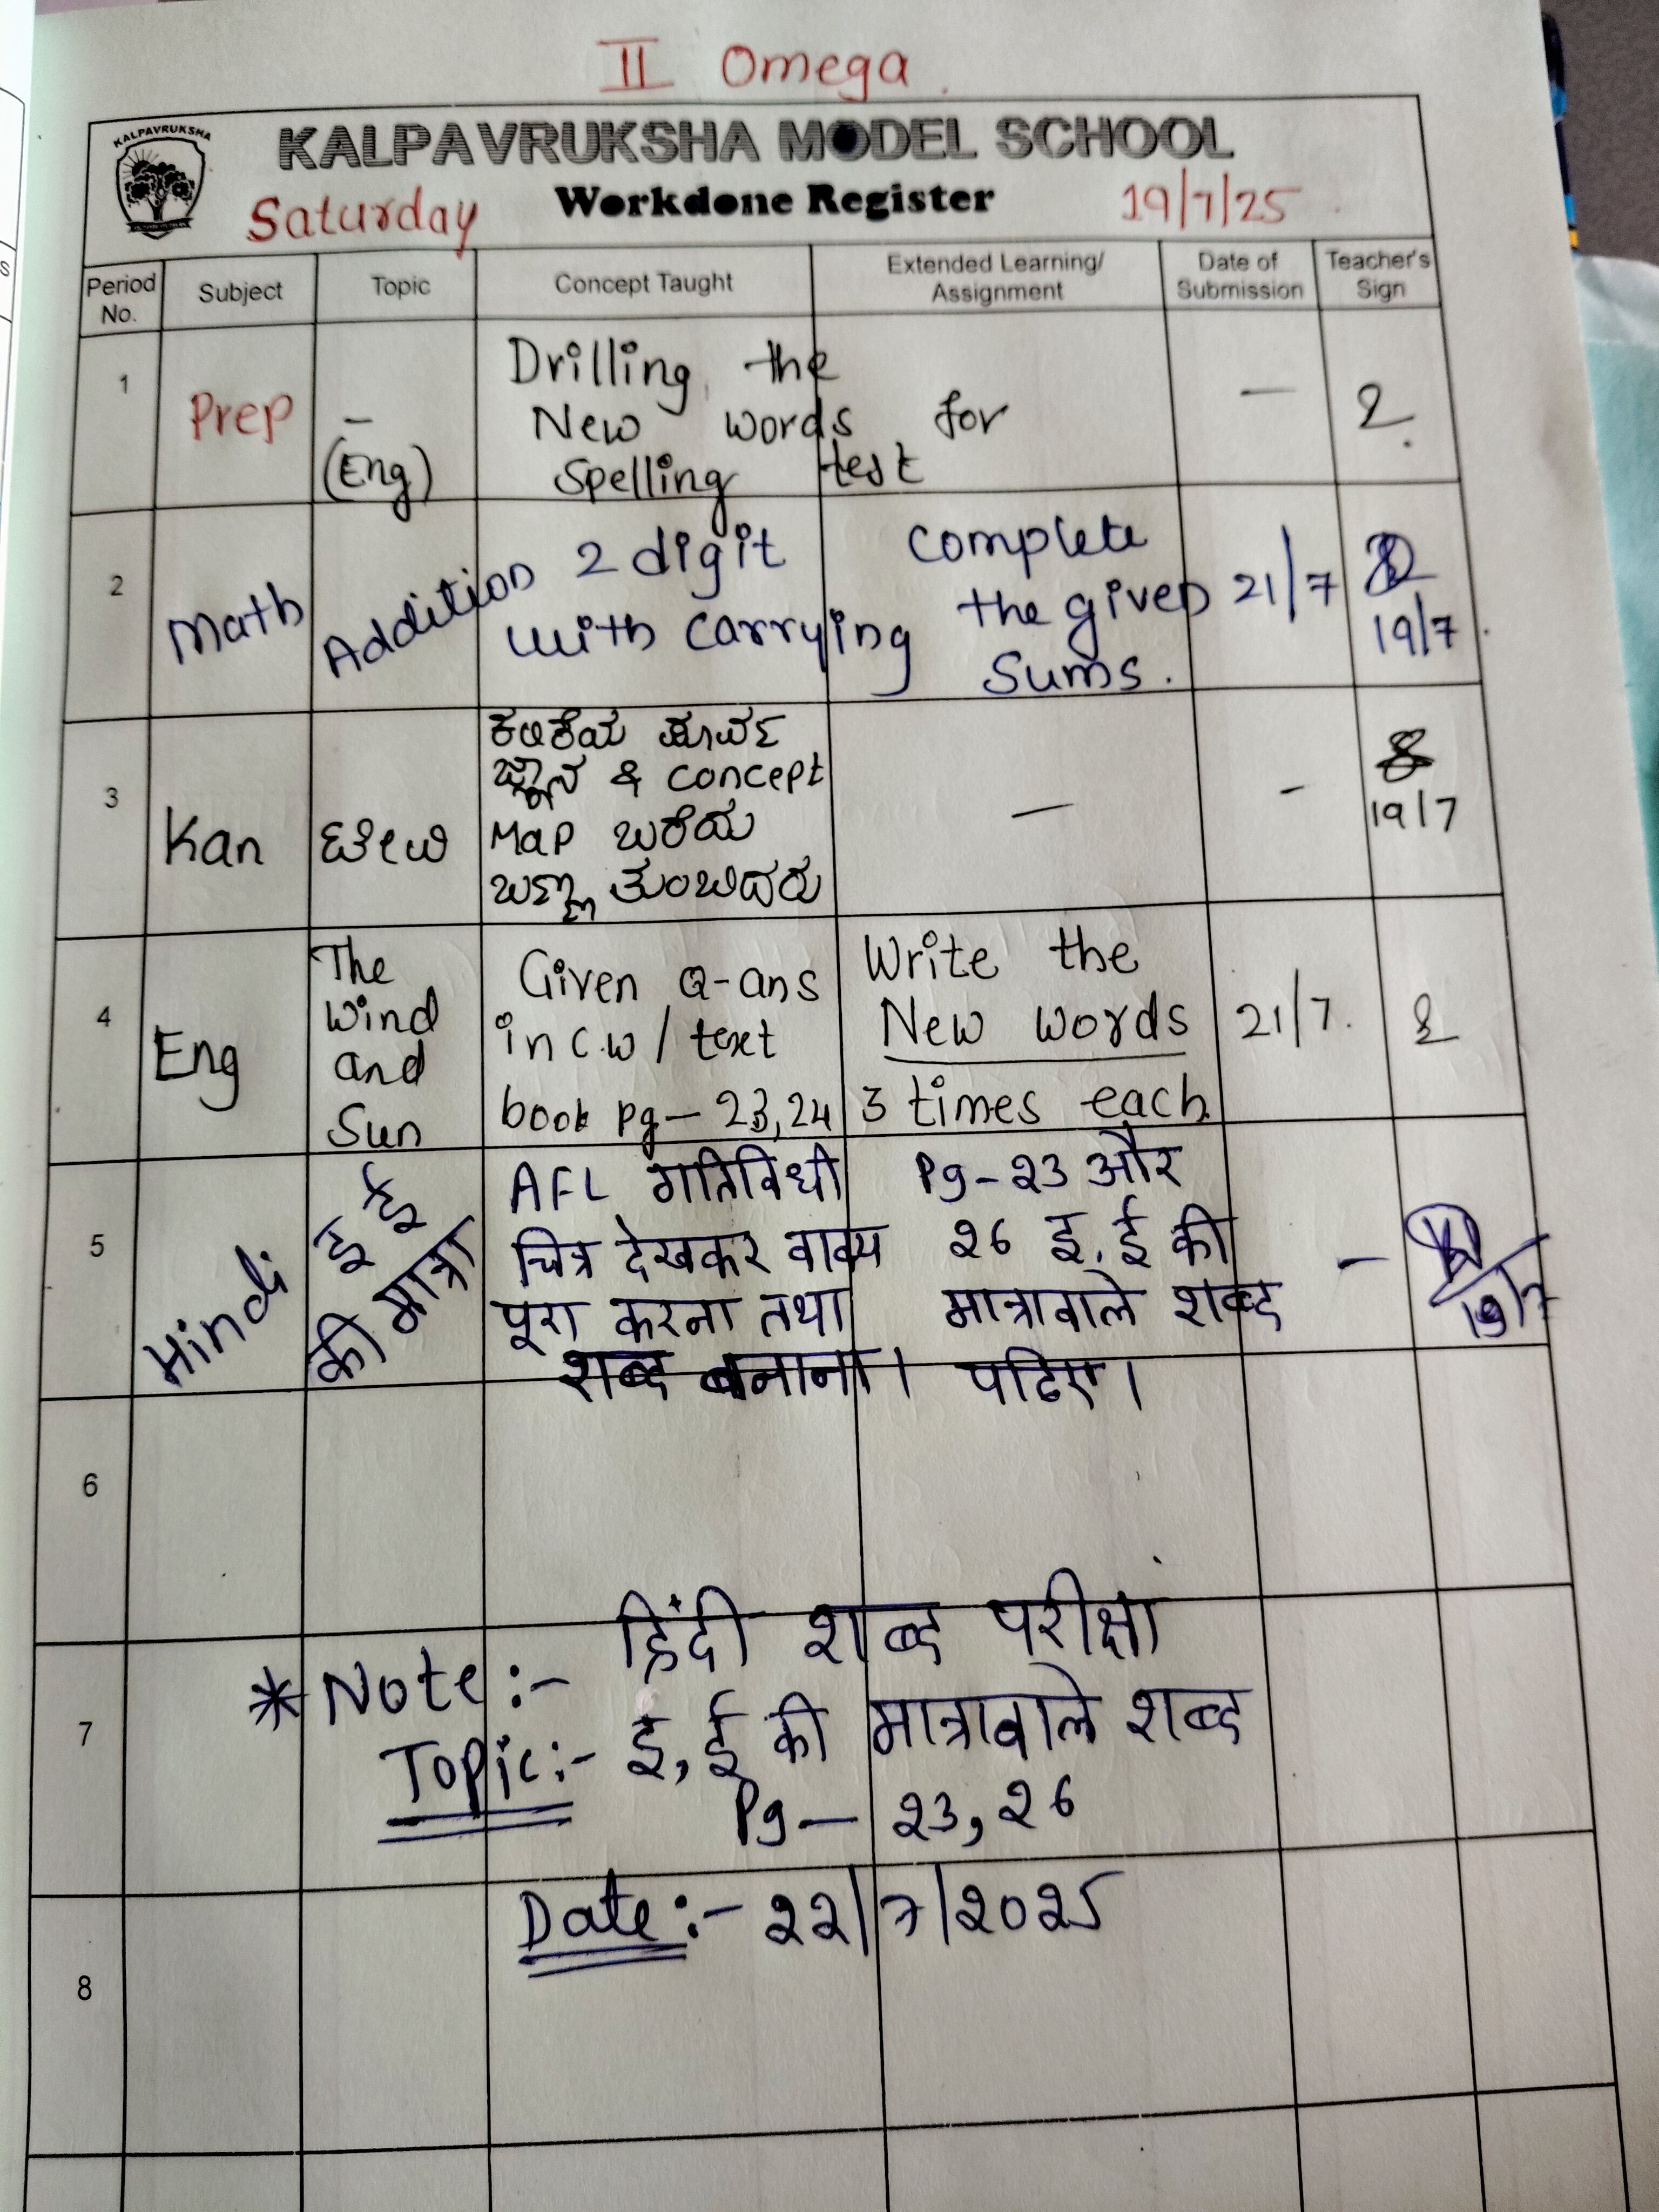 II Omega
KALPAVRUKSHA
KALPAVRUKSHA MODEL SCHOOL
Saturday Workdone Register 19/7/25
Period No. Subject Topic Concept Taught Extended Learning/ Assignment Date of Submission Teacher's Sign
1 Prep – (Eng)
Drilling the
New words for
Spelling test
–
2 Math Addition
2 digit
with carrying
complete
the given
Sums.
21/7
19/7
3 Kan
ಕಲಿಕೆಯ ಪೂರ್ವ
ಜ್ಞಾನ & concept
Map ಬರೆಯ
ಬಣ್ಣ ತುಂಬಿದರು
–
-
19/7
4 Eng
The
Wind
and
Sun
Given Q-ans
in C.W / text
book pg – 23,24
Write the
New words
3 times each
21/7.
5 Hindi
इ ई
की मात्रा
AFL गतिविधी
चित्र देखकर वाक्य
पूरा करना तथा
शब्द बनाना।
Pg – 23 और
26 इ, ई की
मात्रावाले शब्द
पढिए।
–
19/7
6
7
* Note :- हिंदी शब्द परीक्षा
Topic :- इ, ई की मात्रावाले शब्द
Pg – 23, 26
Date :- 22/7/2025
8